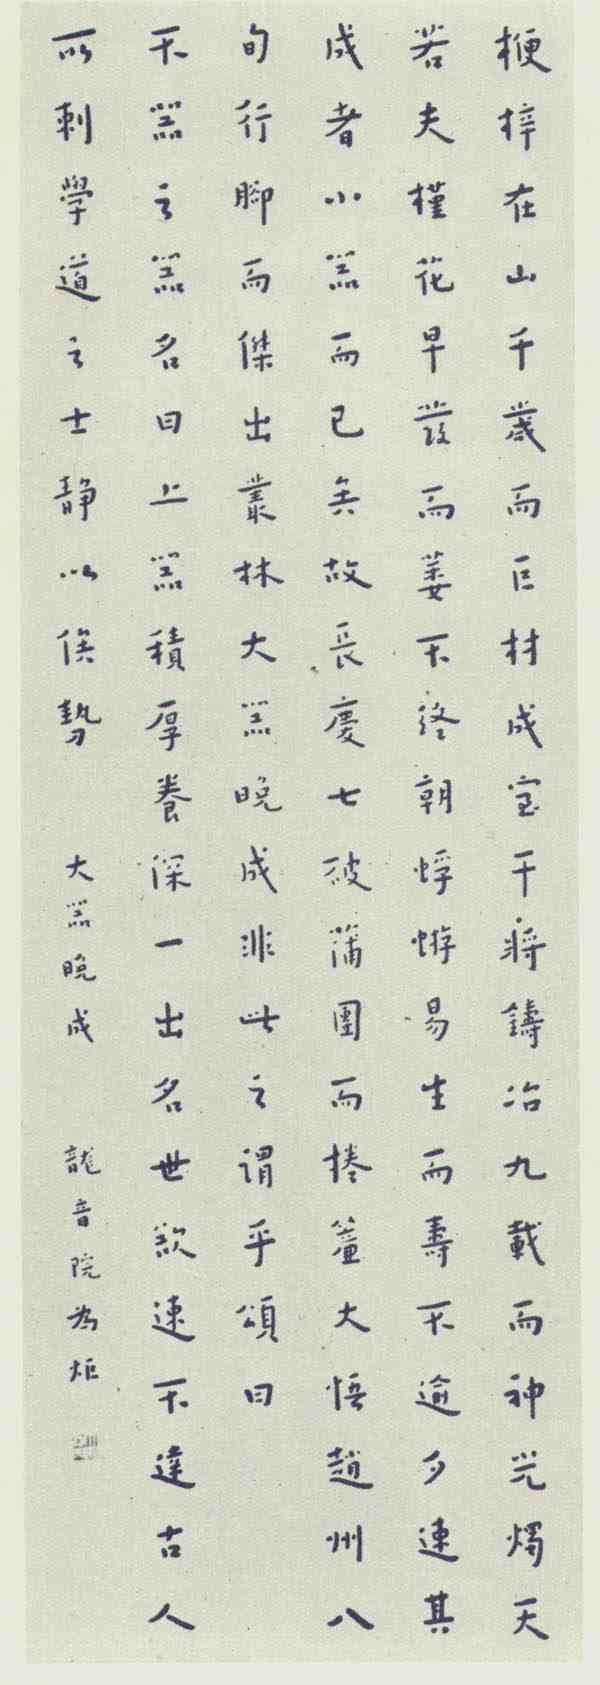 楩梓在山千歳而巨材成室干将鑄冶九載而神光燭天
若夫槿花早發而萎不終朝蜉蝣易生而壽不逾夕速其
成者小器而已矣故長慶七破蒲團而捲簾大悟趙州八
旬行腳而傑出叢林大器晩成非此之謂乎頌曰
不器之器名曰上器積厚養深一出名世欲速不達古人
所刺學道之士静以俟勢
大器晩成
龍音院為炬